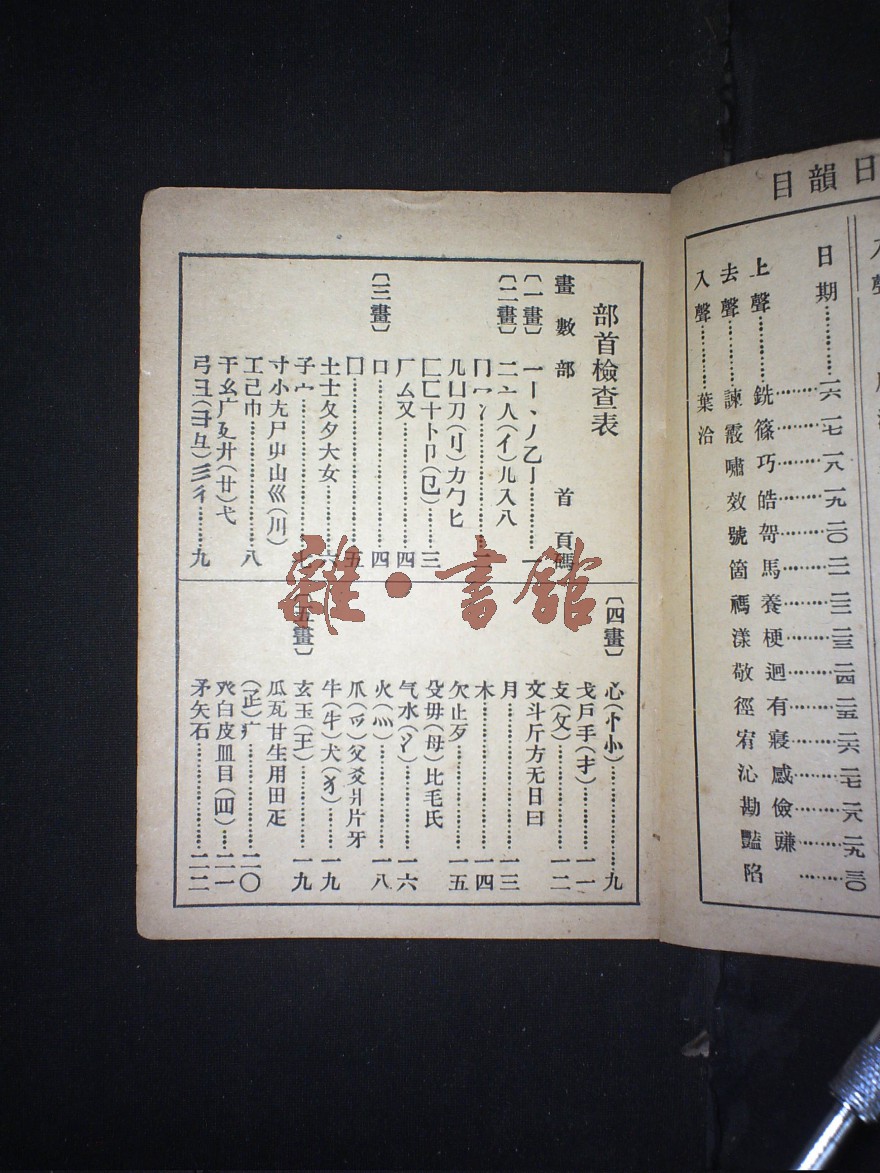 日韻目
入聲
日期…………一六 一七 一八 一九 二〇 二一 二二 二三 二四 二五 二六 二七 二八 二九 三〇
上聲…………銑 篠 巧 皓 哿 馬 養 梗 迥 有 寢 感 儉 豏
去聲…………諫 霰 嘯 效 號 箇 禡 漾 敬 徑 宥 沁 勘 豔 陷
入聲…………葉 洽
部首檢查表
畫數部 首 頁碼
〔一畫〕 一丨丶丿乙亅…………一
〔二畫〕 二亠人(亻)儿入八
冂冖冫…………二
几凵刀(刂)力勹匕
匚匸十卜卩(㔾)………三
厂厶又…………四
〔三畫〕 口…………四
囗…………五
土士夂夊夕大女………六
子宀…………七
寸小尢尸屮山巛(川)
工己巾…………八
干幺广廴廾(廿)弋
弓彐(彑)彡彳………九
〔四畫〕 心(忄㣺)…………九
戈戶手(扌)…………一一
攴(攵)…………一二
文斗斤方无日曰
月…………一三
木…………一四
欠止歹…………一五
殳毋(母)比毛氏
气水(氵)…………一六
火(灬)…………一八
爪(爫)父爻爿片牙
牛(牜)犬(犭)………一九
〔五畫〕 玄玉(王)…………一九
瓜瓦甘生用田疋
(𤴔)疒…………二〇
癶白皮皿目(罒)………二一
矛矢石…………二二
雜·書館